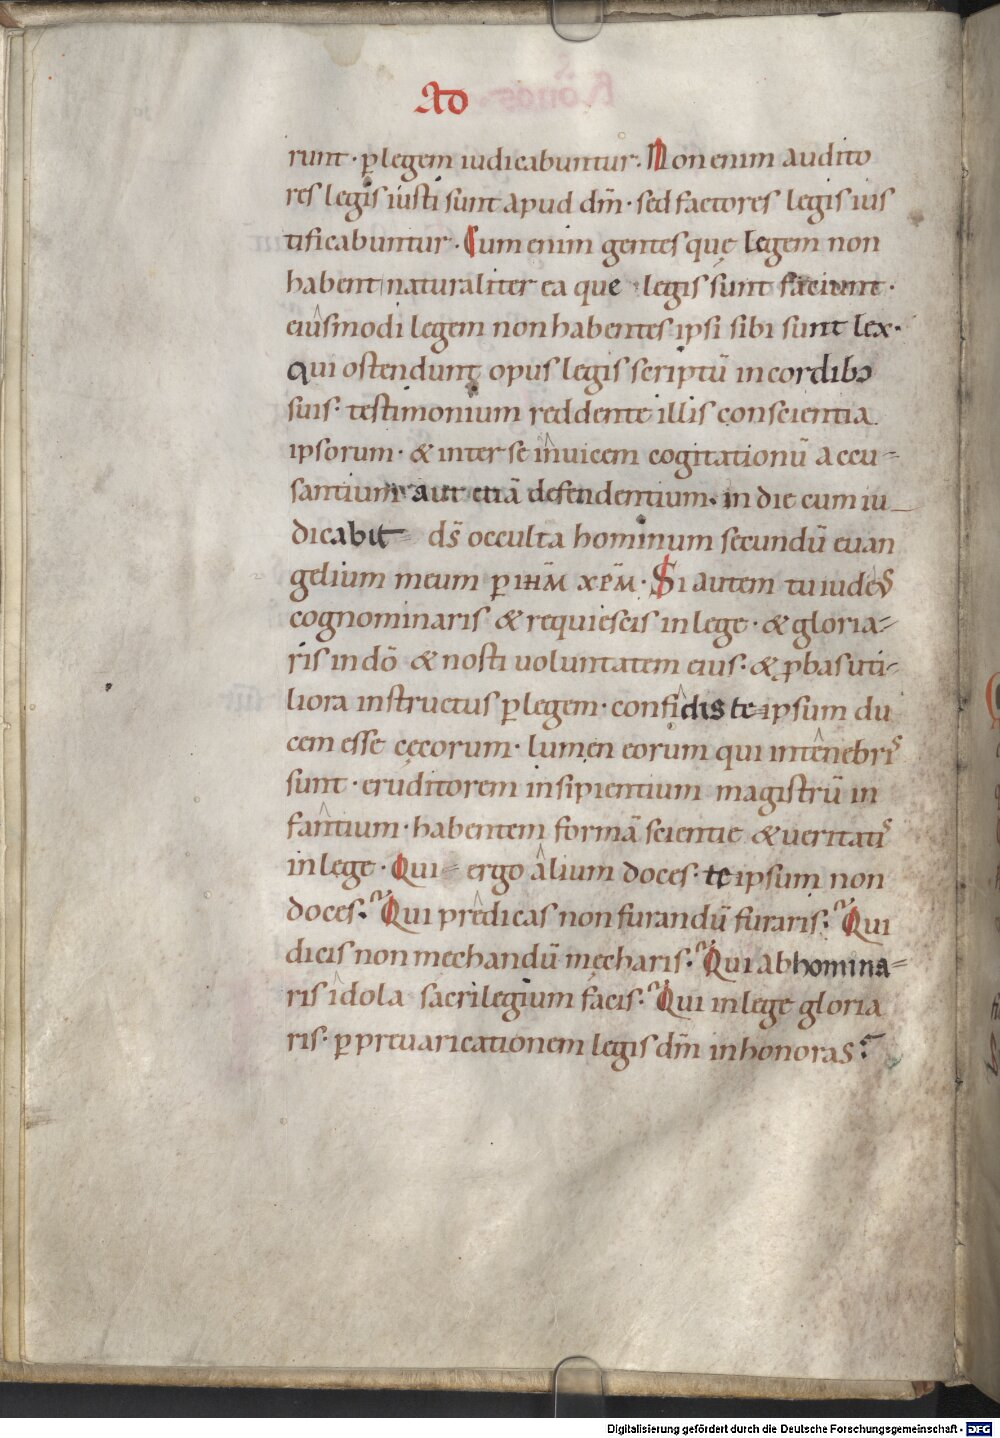 AD
runt · ꝑlegem iudicabuntur. Non enim audito
res legis iusti sunt apud dm̄ · sed factores legis ius
tificabuntur · Cum enim gentes quę legem non
habent naturaliter ea que legis sunt faciunt ·
eiusmodi legem non habentes ipsi sibi sunt lex ·
qui ostendunt opus legis scriptū in cordibꝫ
suis · testimonium reddente illis conscientia
ipsorum · & inter se inuicem cogitationū accu-
santium aut etiā defendentium · in die cum iu
dicabit ds̄ occulta hominum secundū euan
gelium meum ꝑ ihm̄ xp̄m · Si autem tu iudeꝰ
cognominaris & requiescis in lege · & gloria-
ris in dō & nosti uoluntatem eius · & ꝓbas uti-
liora instructus ꝑ legem · confidis te ipsum du
cem esse cęcorum · lumen eorum qui in tenebris
sunt · eruditorem insipientium magistrū in
fantium · habentem formā scientie & ueritatis
in lege · Qui ergo alium doces · te ipsum non
doces. Qui predicas non furandū furaris. Qui
dicis non mechandū męcharis. Qui abhomina-
ris idola sacrilegium facis. Qui in lege gloria
ris · ꝑ preuaricationem legis dm̄ inhonoras.
Digitalisierung gefördert durch die Deutsche Forschungsgemeinschaft - DFG